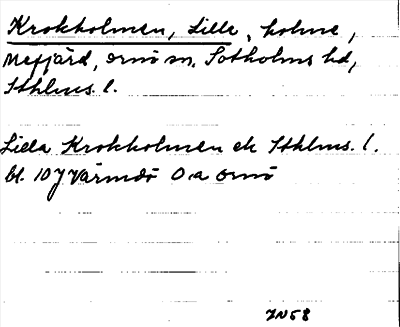 Krokholmen, Lille, holme,
Mefjärd, Ornö sn, Sotholms hd,
Sthlms. l.
Lilla Krokholmen ek Sthlms. l.
bl. 107 Värmdö O.a Ornö
IN58